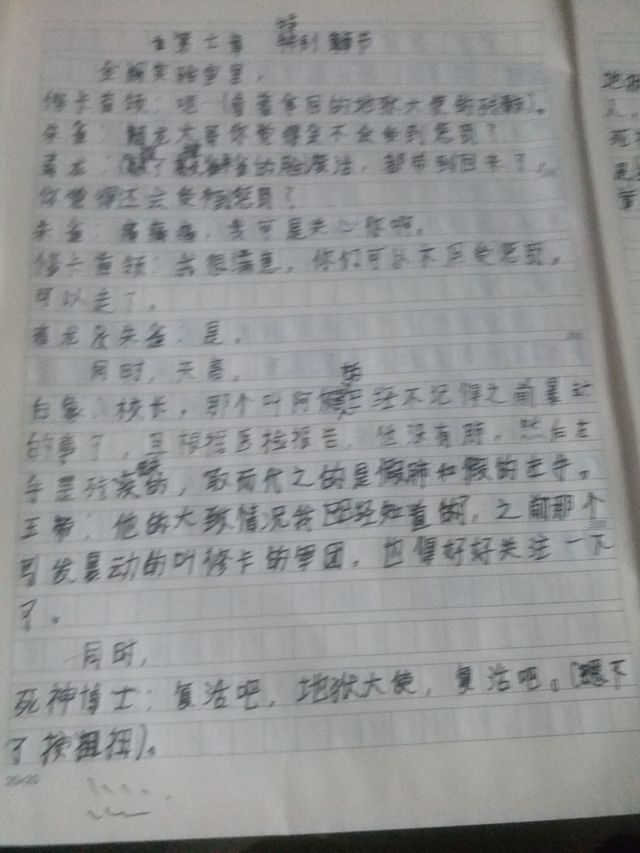 第七章 特别章节
金 实验室里,
修卡首领:嗯…(看着拿回的地狱大使的残骸)。
朱雀:青龙大哥你觉得会不会受到惩罚?
青龙: 都带到回来了,
你觉得还会受到惩罚?
朱雀:痛痛痛,我可是关心你啊。
修卡首领:我很满意,你们可以不用受惩罚,
可以走了。
青龙及朱雀:是。
同时,天宫。
白象:校长,那个叫阿 已经不记得之前暴动
的事了,且根据医检报告,他没有肺,然后左
手是残疾的,取而代之的是假肺和假的左手。
王帝:他的大致情况我已经知道的了,之前那个
引发暴动的叫修卡的军团,也得好好关注一下
了。
同时,
死神博士:复活吧,地狱大使,复活吧。(摁下
了按钮扭)。
20×20
地狱
人,